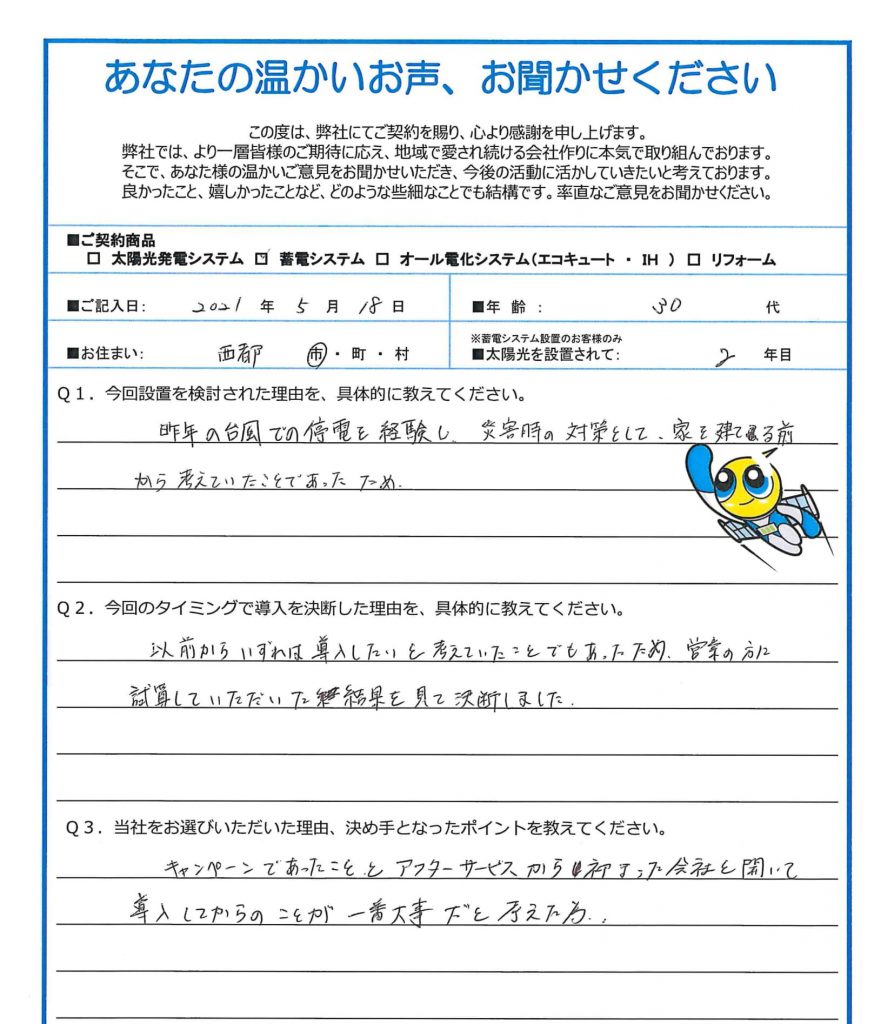 あなたの温かいお声、お聞かせください
この度は、弊社にてご契約を賜り、心より感謝を申し上げます。
弊社では、より一層皆様のご期待に応え、地域で愛され続ける会社作りに本気で取り組んでおります。
そこで、あなた様の温かいご意見をお聞かせいただき、今後の活動に活かしていきたいと考えております。
良かったこと、嬉しかったことなど、どのような些細なことでも結構です。率直なご意見をお聞かせください。
■ご契約商品
□ 太陽光発電システム ☑ 蓄電システム □ オール電化システム(エコキュート ・ IH ) □ リフォーム
■ご記入日: 2021 年 5 月 18 日
■年 齢 : 30 代
■お住まい: 西都 市・町・村
※蓄電システム設置のお客様のみ
■太陽光を設置されて: 2 年目
Q1. 今回設置を検討された理由を、具体的に教えてください。
昨年の台風での停電を経験し、災害時の対策として、家を建てる前
から考えていたことであったため。
Q2. 今回のタイミングで導入を決断した理由を、具体的に教えてください。
以前からいずれは導入したいと考えていたことでもあったため、営業の方に
試算していただいた結果を見て決断しました。
Q3. 当社をお選びいただいた理由、決め手となったポイントを教えてください。
キャンペーンであったことと アフターサービスから初まった会社と聞いて
導入してからのことが一番大事だと考えた為。